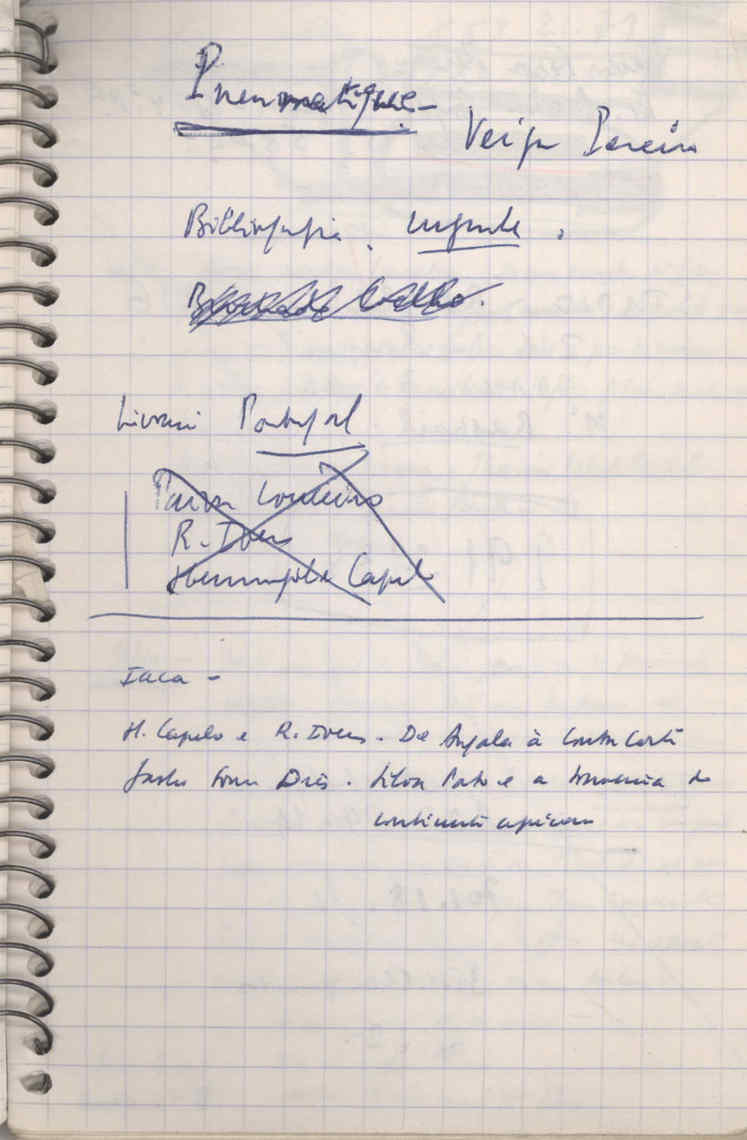 Pneumatique -
Veiga Pereira
Bibliografia. urgente.
Livraria Portugal
Paiva Couceiro
R. Ivens
Hermenegildo Capelo
Iaca -
H. Capelo e R. Ivens - De Angola à Contra Costa
Gastão Sousa Dias - Silva Porto e a travessia do
continente africano